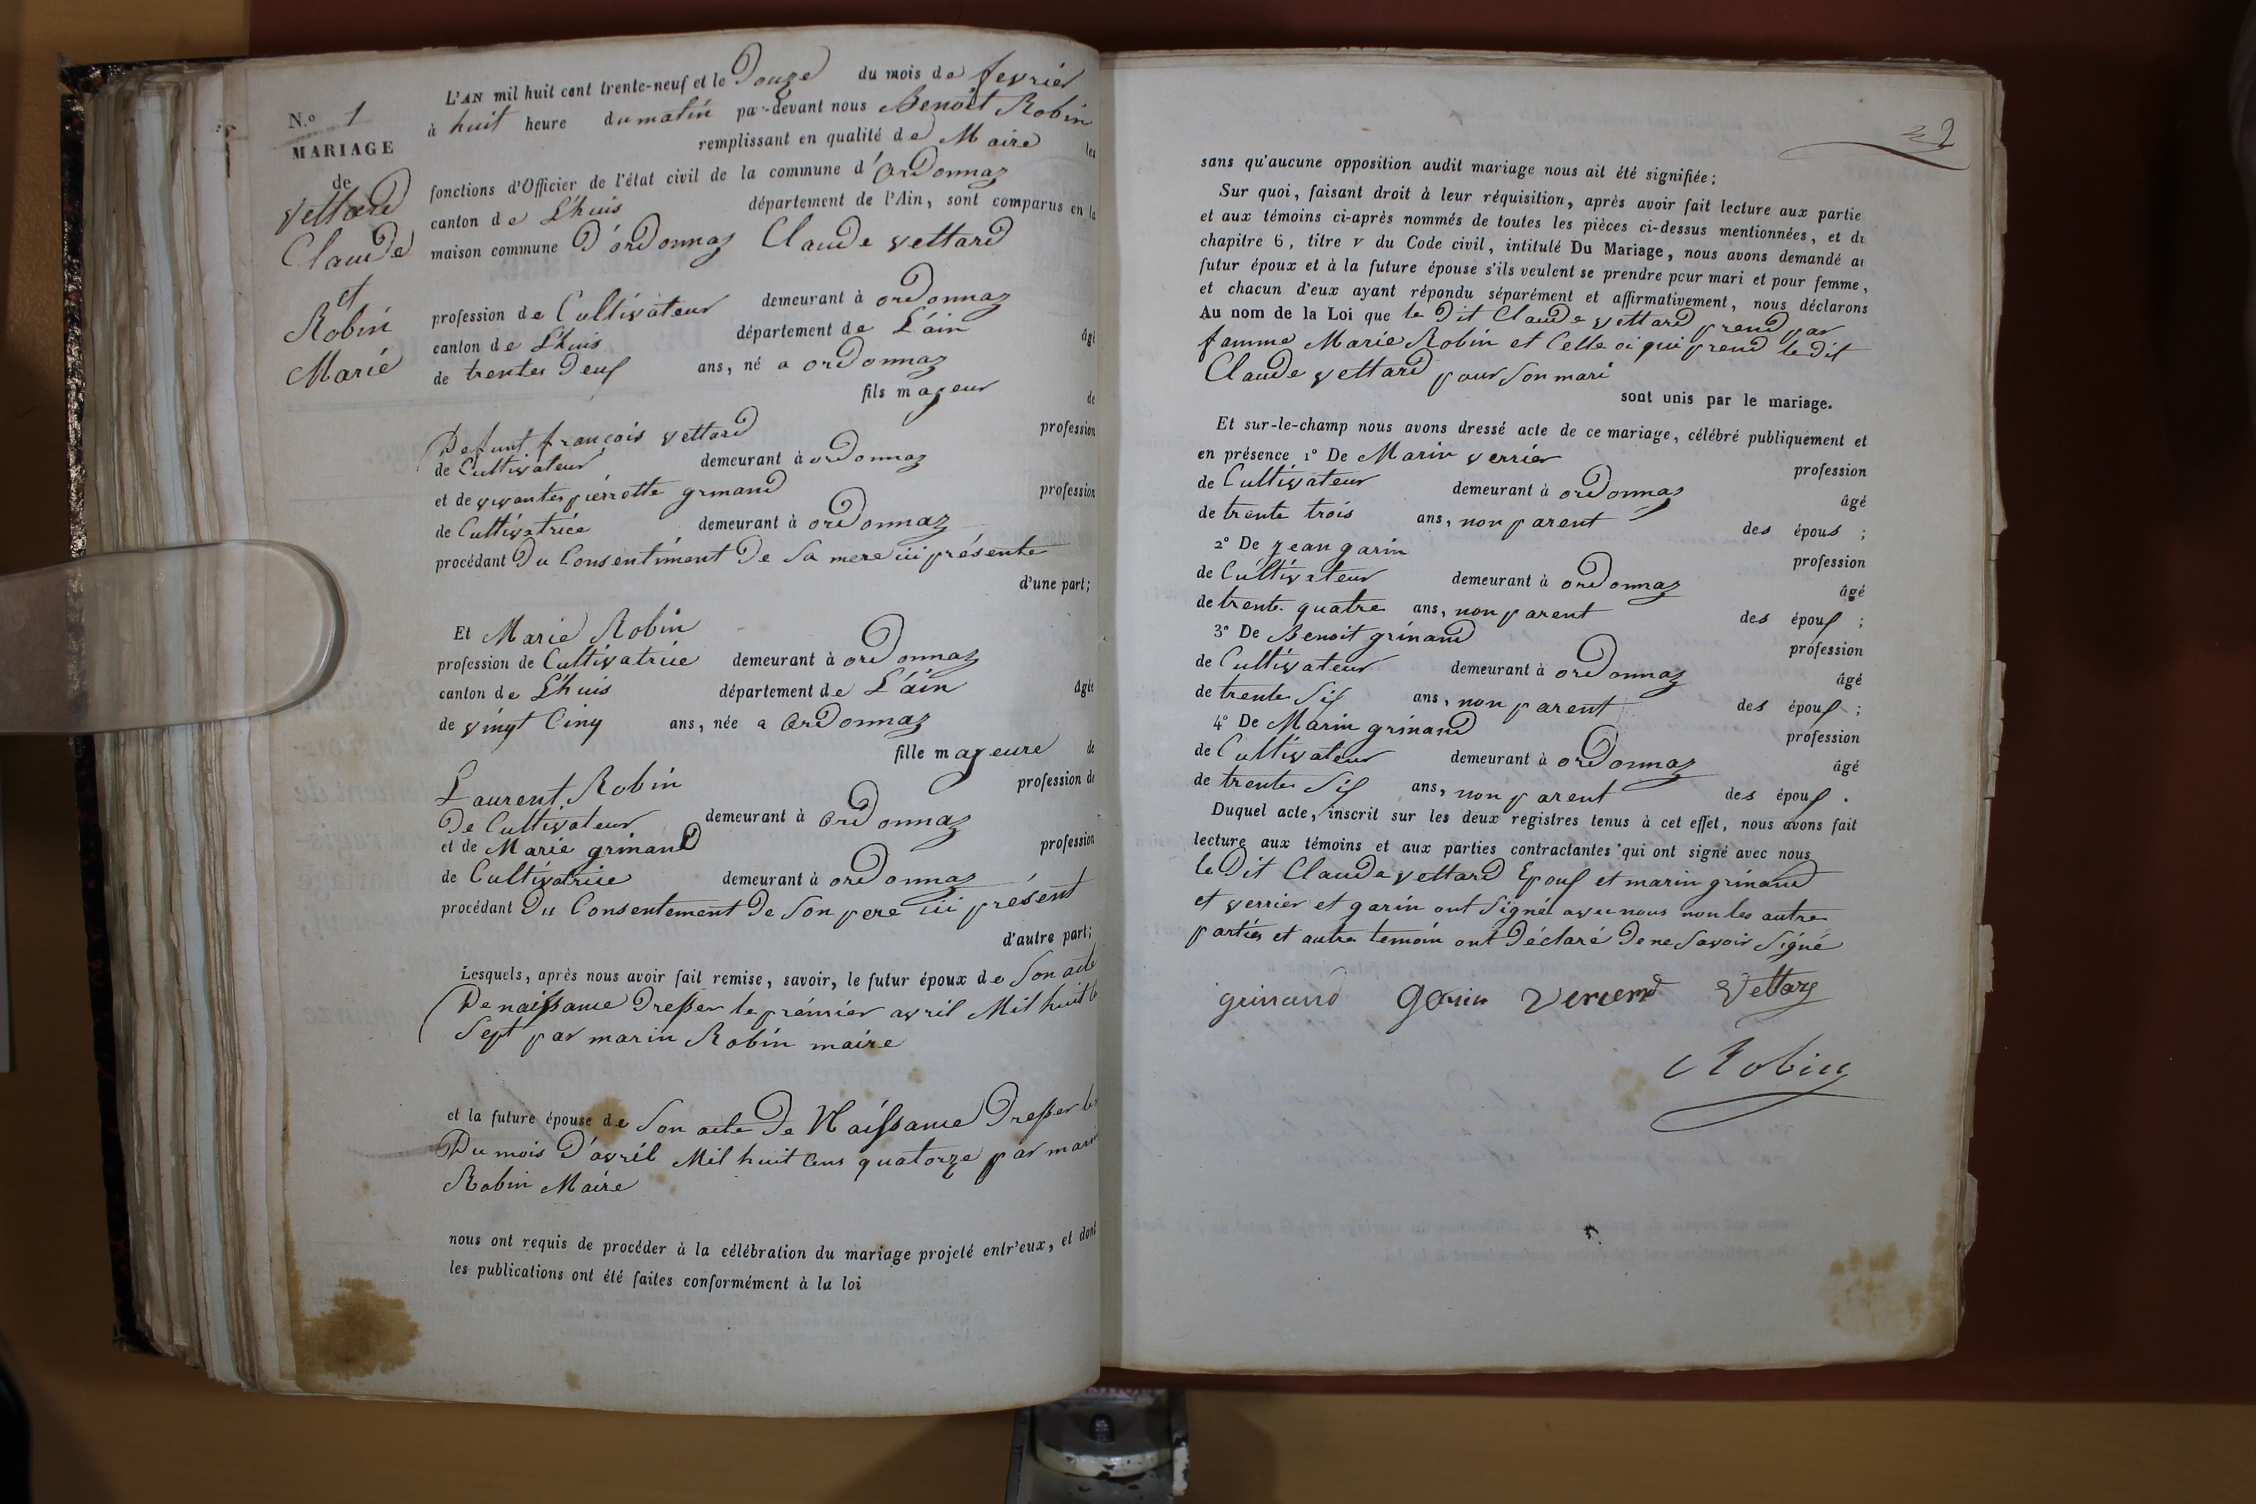 N.o 1
MARIAGE
de
Vettard
Claude
et
Robin
Marie
L'AN mil huit cent trente-neuf et le Douze du mois de fevrier
à huit heure du matin par-devant nous Benoit Robin
remplissant en qualité de Maire les
fonctions d'Officier de l'état civil de la commune d'Ordonnaz
canton de L'huis département de l'Ain, sont comparus en la
maison commune D'ordonnaz Claude vettard
profession de Cultivateur demeurant à ordonnaz
canton de L'huis département de L'ain âgé
de trentes Deuf ans, né a ordonnaz
fils mageur de
Defunt françois vettard profession
de Cultivateur demeurant à ordonnaz
et de vivantes pierrette grinand profession
de Cultivatrice demeurant à ordonnaz
procédant Du Consentiment De Sa mere ici présente
d'une part;
Et Marie Robin
profession de Cultivatrice demeurant à ordonnaz
canton de L'huis département de L'ain âgée
de vingt Cinq ans, née a Ordonnaz
fille mageure de
Laurent Robin profession de
De Cultivateur demeurant à Ordonnaz
et de Marie grinand profession
de Cultivatrice demeurant à ordonnaz
procédant Du Consentement De Son pere ici présent
d'autre part;
Lesquels, après nous avoir fait remise, savoir, le futur époux de Son acte
De naissance Dresser le prémiér avril Mil huit
Sept par marin Robin maire
et la future épouse de Son acte De Naissance Dresser
Du mois D'avril Mil huit Cens quatorze par
Robin Maire
nous ont requis de procéder à la célébration du mariage projeté entr'eux, et dont
les publications ont été faites conformément à la loi
2
sans qu'aucune opposition audit mariage nous ait été signifiée;
Sur quoi, faisant droit à leur réquisition, après avoir fait lecture aux partie
et aux témoins ci-après nommés de toutes les pièces ci-dessus mentionnées, et du
chapitre 6, titre v du Code civil, intitulé Du Mariage, nous avons demandé au
futur époux et à la future épouse s'ils veulent se prendre pour mari et pour femme,
et chacun d'eux ayant répondu séparément et affirmativement, nous déclarons
Au nom de la Loi que le Dit Claude vettard prend par
famme Marie Robin et Celle ci qui prend le dit
Claude vettard pour Son mari
sont unis par le mariage.
Et sur-le-champ nous avons dressé acte de ce mariage, célébré publiquement et
en présence 1° De Marin verrier profession
de Cultivateur demeurant à ordonnaz âgé
de trente trois ans, non parent des épous ;
2° De jean garin profession
de Cultivateur demeurant à ordonnaz âgé
de trente quatre ans, non parent des épouf ;
3° De Benoit grinand profession
de Cultivateur demeurant à ordonnaz âgé
de trente Sif ans, non parent des épouf ;
4° De Marin grinand profession
de Cultivateur demeurant à ordonnaz âgé
de trente Sif ans, non parent des épouf .
Duquel acte, inscrit sur les deux registres tenus à cet effet, nous avons fait
lecture aux témoins et aux parties contractantes qui ont signé avec nous
le Dit Claude vettard Epouf et marin grinand
et verrier et garin ont Signé avec nous non les autre
partiés et autre temoin ont Déclaré De ne Savoir Signé
guinand Garin Vettard
Robin